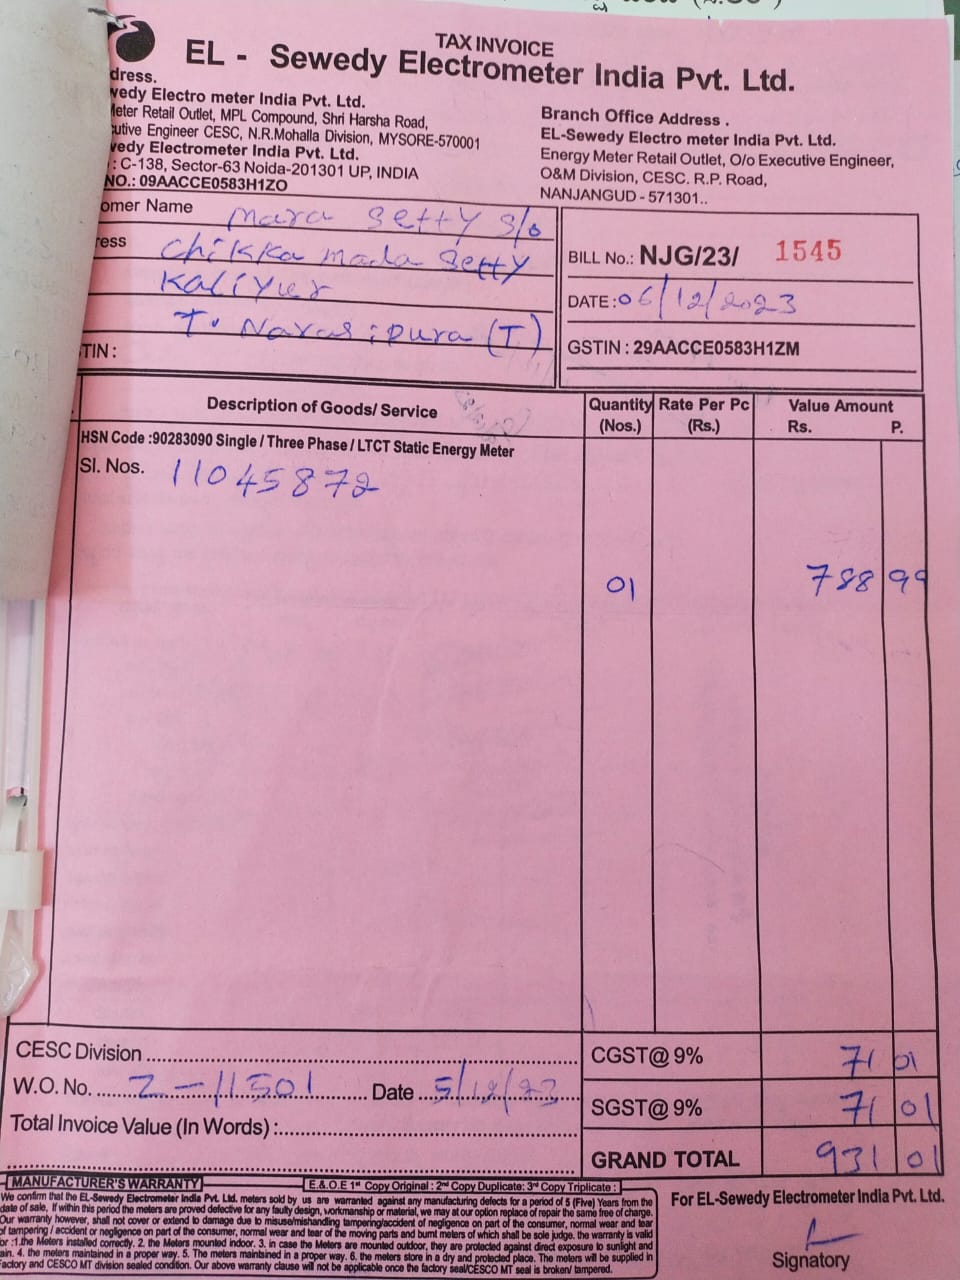 TAX INVOICE
EL - Sewedy Electrometer India Pvt. Ltd.
dress.
wedy Electro meter India Pvt. Ltd.
Meter Retail Outlet, MPL Compound, Shri Harsha Road,
cutive Engineer CESC, N.R.Mohalla Division, MYSORE-570001
wedy Electrometer India Pvt. Ltd.
: C-138, Sector-63 Noida-201301 UP, INDIA
NO.: 09AACCE0583H1ZO
Branch Office Address .
EL-Sewedy Electro meter India Pvt. Ltd.
Energy Meter Retail Outlet, O/o Executive Engineer,
O&M Division, CESC. R.P. Road,
NANJANGUD - 571301..
omer Name Mara Setty S/o
ress Chikka mada Setty
Kaliyur
T. Narasipura (T)
TIN :
BILL No.: NJG/23/ 1545
DATE : 06/12/2023
GSTIN : 29AACCE0583H1ZM
Description of Goods/ Service Quantity (Nos.) Rate Per Pc (Rs.) Value Amount Rs. P.
HSN Code :90283090 Single / Three Phase / LTCT Static Energy Meter
Sl. Nos. 11045872
01 788 99
CESC Division
W.O. No. Z-11501 Date 5/12/23
Total Invoice Value (In Words) :
CGST@ 9% 71 01
SGST@ 9% 71 01
GRAND TOTAL 931 01
MANUFACTURER'S WARRANTY E.& O.E 1st Copy Original : 2nd Copy Duplicate: 3rd Copy Triplicate :
We confirm that the EL-Sewedy Electrometer India Pvt. Ltd. meters sold by us are warranted against any manufacturing defects for a period of 5 (Five) Years from the
date of sale, If within this period the meters are proved defective for any faulty design, workmanship or material, we may at our option replace of repair the same free of charge.
Our warranty however, shall not cover or extend to damage due to misuse/mishandling tampering/accident of negligence on part of the consumer, normal wear and tear
of tampering / accident or negligence on part of the consumer, normal wear and tear of the moving parts and burnt meters of which shall be sole judge. the warranty is valid
or :1.the Meters installed correctly. 2. the Meters mounted indoor. 3. in case the Meters are mounted outdoor, they are protected against direct exposure to sunlight and
ain. 4. the meters maintained in a proper way. 5. The meters maintsined in a proper way. 6. the meters store in a dry and protected place. The meters will be supplied in
Factory and CESCO MT division sealed condition. Our above warranty clause will not be applicable once the factory seal/CESCO MT seal is broken/ tampered.
For EL-Sewedy Electrometer India Pvt. Ltd.
Signatory